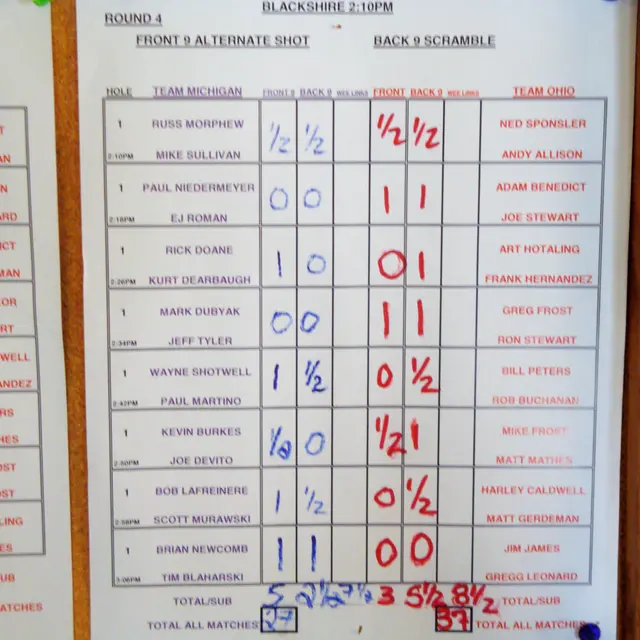 BLACKSHIRE 2:10PM
ROUND 4
FRONT 9 ALTERNATE SHOT BACK 9 SCRAMBLE
HOLE TEAM MICHIGAN FRONT 9 BACK 9 FRONT BACK 9 TEAM OHIO
1 RUSS MORPHEW 1/2 1/2 1/2 1/2 NED SPONSLER
2:10PM MIKE SULLIVAN ANDY ALLISON
1 PAUL NIEDERMEYER 0 0 1 1 ADAM BENEDICT
2:18PM EJ ROMAN JOE STEWART
1 RICK DOANE 1 0 0 1 ART HOTALING
2:26PM KURT DEARBAUGH FRANK HERNANDEZ
1 MARK DUBYAK 0 0 1 1 GREG FROST
2:34PM JEFF TYLER RON STEWART
1 WAYNE SHOTWELL 1 1/2 0 1/2 BILL PETERS
2:42PM PAUL MARTINO ROB BUCHANAN
1 KEVIN BURKES 1/2 0 1/2 1 MIKE FROST
2:50PM JOE DEVITO MATT MATHES
1 BOB LAFREINERE 1 1/2 0 1/2 HARLEY CALDWELL
2:58PM SCOTT MURAWSKI MATT GERDEMAN
1 BRIAN NEWCOMB 1 1 0 0 JIM JAMES
3:06PM TIM BLAHARSKI GREGG LEONARD
TOTAL/SUB 5 2 1/2 7 1/2 3 5 1/2 8 1/2 TOTAL/SUB
TOTAL ALL MATCHES 27 37 TOTAL ALL MATCHES